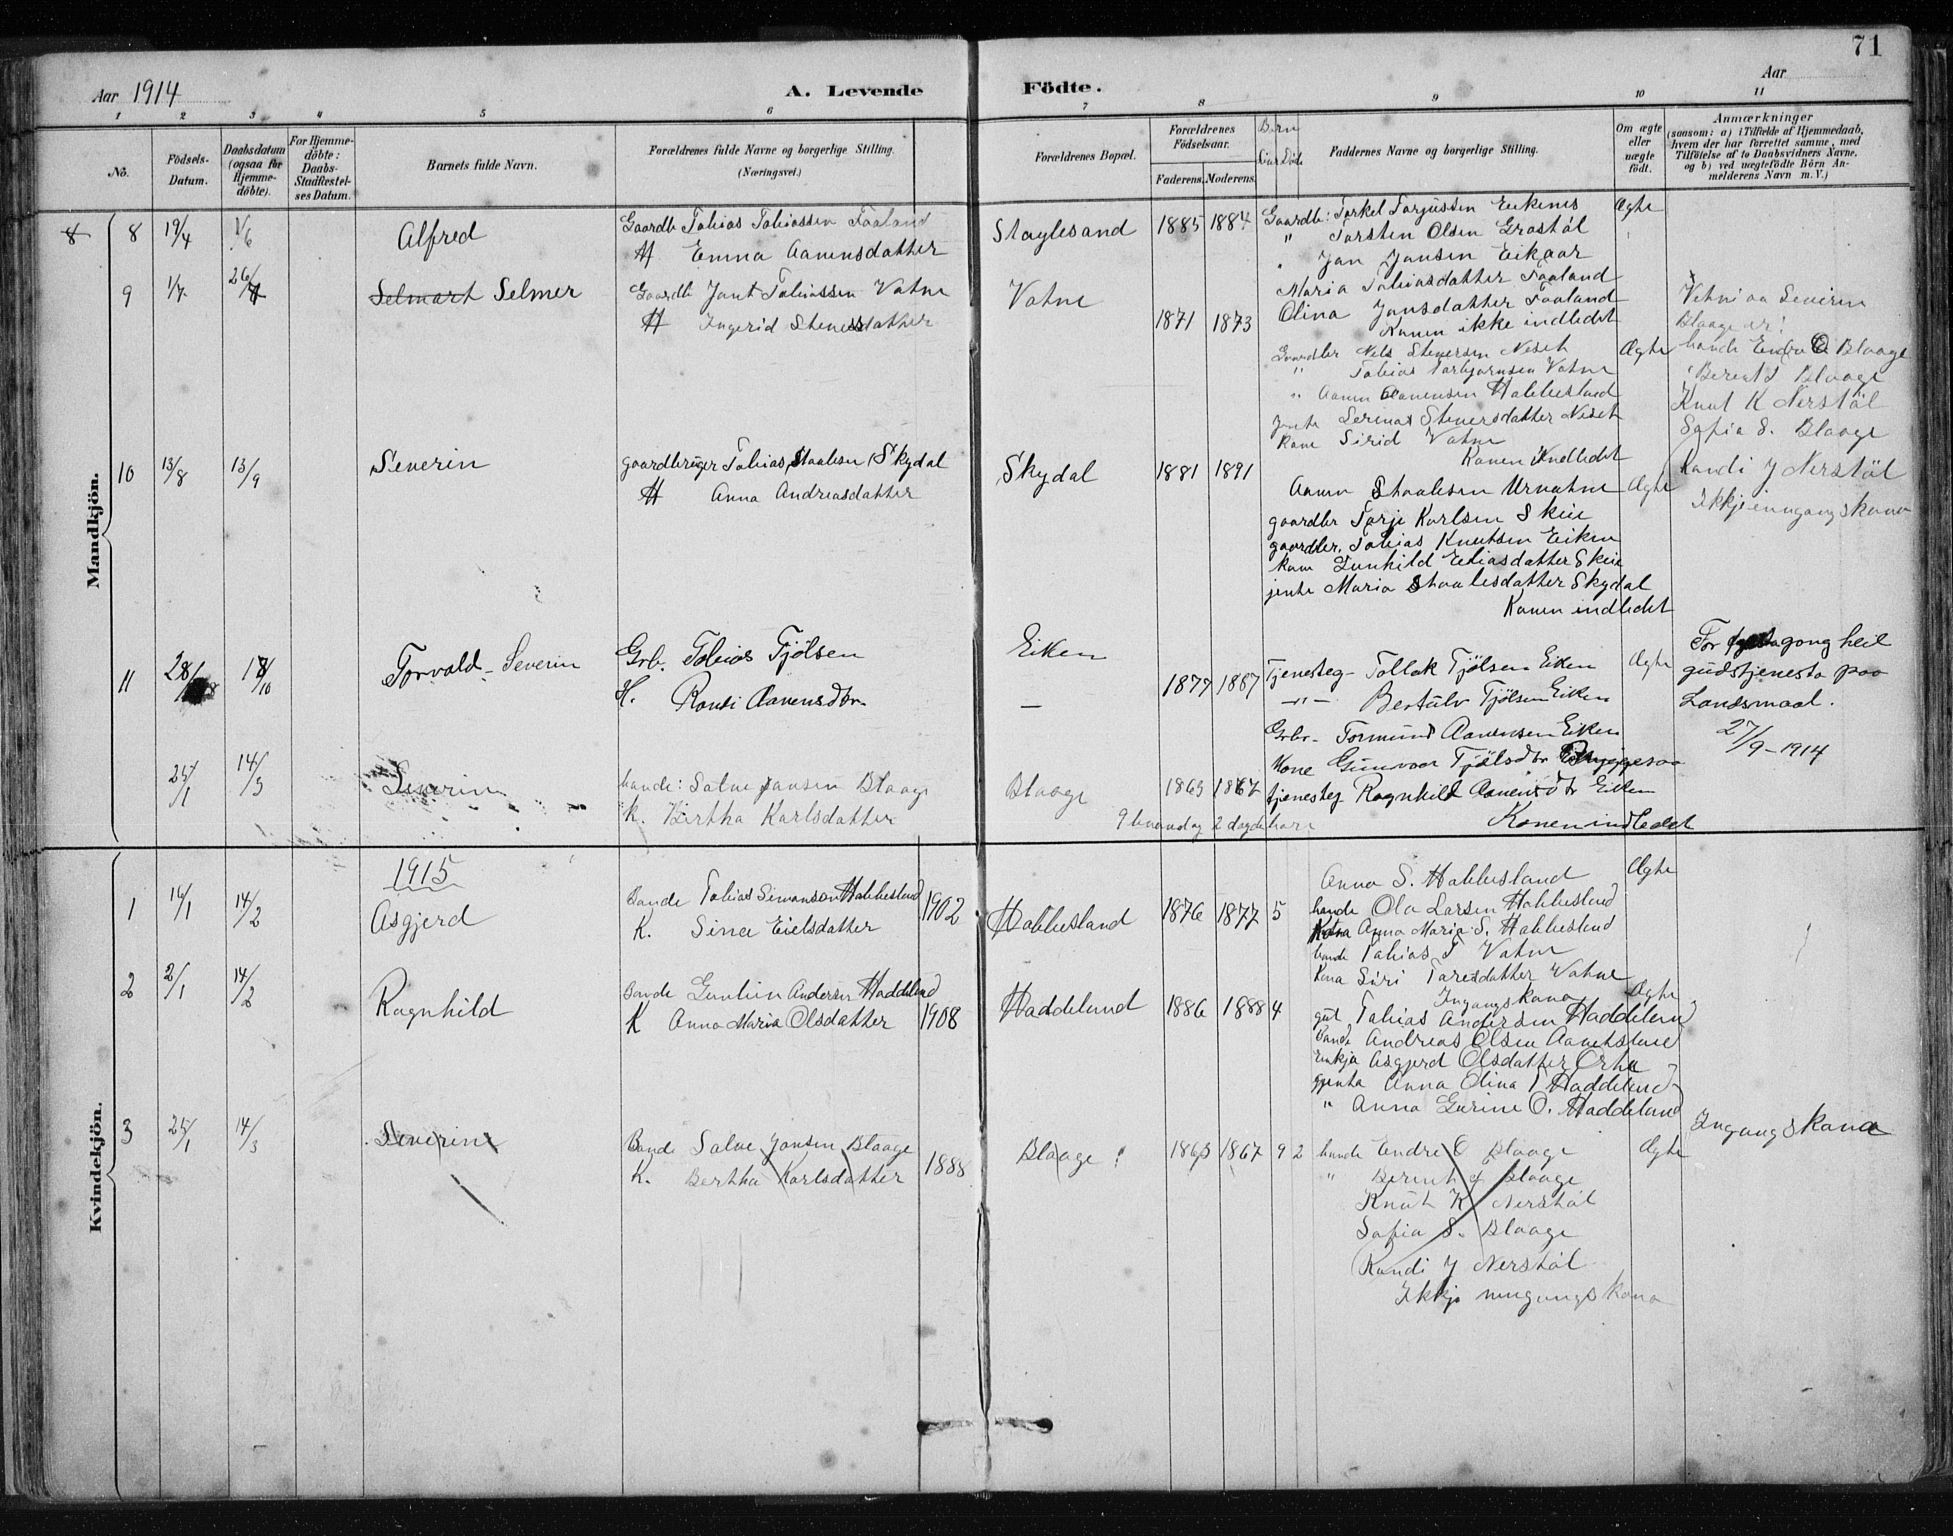 71
Aar 1914
A. Levende Födte.
Aar
1 2 3 4 5 6 7 8 9 10 11
No.
Födsels-Datum.
Daabsdatum (ogsaa for Hjemme-döbte).
For Hjemme-döbte: Daabs-Stadfæstel-ses Datum.
Barnets fulde Navn.
Forældrenes fulde Navne og borgerlige Stilling.
(Næringsvei.)
Forældrenes Bopæl.
Forældrenes Födselsaar.
Faderens. Moderens.
Born
Faddernes Navne og borgerlige Stilling.
Om ægte eller uægte födt.
Anmærkninger
(saasom: a) i Tilfælde af Hjemmedaab,
hvem der har forrettet samme, med
Tilföielse af to Daabsvidners Navne,
og b) ved uægtefödte Börn An-
melderens Navn m. V.)
Mandkjön.
8 8 19/4 1/6 Alfred
Gaardb Tobias Tobiassen Faaland
H Emma Aanensdatter
Staylesand 1885 1884
Gaardb: Torkel Torjussen Eikenes
" Torsten Olsen Grostöl
" Jan Jansen Eikaar
Maria Tobiasdatter Faaland
Olina Jansdatter Faaland
Konen ikke indledet
Ægte
9 1/7 26/7 Selmart Selmer
Gaardb Tobiassen Vatne
H Ingerid Stenersdatter
Vatne 1871 1873
Gaardbr Nels Stenersen Neset
" Tobias Torbjørnsen Vatne
" Aanen Aanensen Habbesland
Jente Serina Stenersdatter Neset
Kone Sirid Vatne
Konen indledet
Ægte
Severin
Blaage er:
bonde Endre O Blaage
" Berent J Blaage
Knut K Nerstöl
Sofia S. Blaage
Randi J Nerstöl
Ikkje inngangskona
10 13/8 13/9 Severin
gaardbruger Tobias Staalesen Skydal
H Anna Andreasdatter
Skydal 1881 1891
Aanen Staalesen Urvatne
gaardbr Torje Karlsen Skeie
gaardbr. Tobias Knutsen Eiken
kone Gunhild Eliasdatter Skeie
jente Maria Staalesdatter Skydal
Konen indledet
Ægte
11 28/8 18/10 Torvald-Severin
Grb. Tobias Tjölsen
H. Randi Aanensdtr.
Eiken
—
1877 1887
Tjenesteg- Tollak Tjölsen Eiken
—"— Bertulv Tjölsen Eiken
Grbr- Tormund Aanensen Eiken
Kone Gunvor Tjölsdtr
tjenesteg Ragnhild Aanensdtr Eiken
Konen indledet
Ægte
For gong heil
gudstjenesta paa
Landsmaal.
27/9-1914
25/1 14/3 Severine
bonde: Salve Jansen Blaage
K. Birtha Karlsdatter
Blaage 1863 1867
Kvindekjön.
1915
1 14/2 Asgjerd
Bonde Tobias Simonson Habbesland
K. Sina Eielsdatter
1902 Habbesland 1876 1877 5
Anna S. Habbesland
bonde Ola Larsen Habbesland
Kona Anna Maria S. Habbesland
bonde Tobias T Vatne
Kona Siri Taresdatter Vatne
Ingangskona
Ægte
2 2/1 14/2 Ragnhild
Bonde Andersen Haddeland
K Anna Maria Olsdatter
1908 Haddeland 1886 1888 4
gut Tobias Andersen Haddeland
Bonde Andreas Olsen
Enkja Asgjerd Olsdatter
gjenta Anna Olina T Haddeland
" Anna Gurine O. Haddeland
Ægte
Ingangskona
3 25/1 14/3 Severine
Bonde Salve Jansen Blaage
K. Bertha Karlsdatter
1888 Blaage 1863 1867 9 2
bonde Endre O Blaage
" Berent J Blaage
Knut K Nerstöl
Sofia S. Blaage
Randi J Nerstöl
Ikkje inngangskona
Ægte